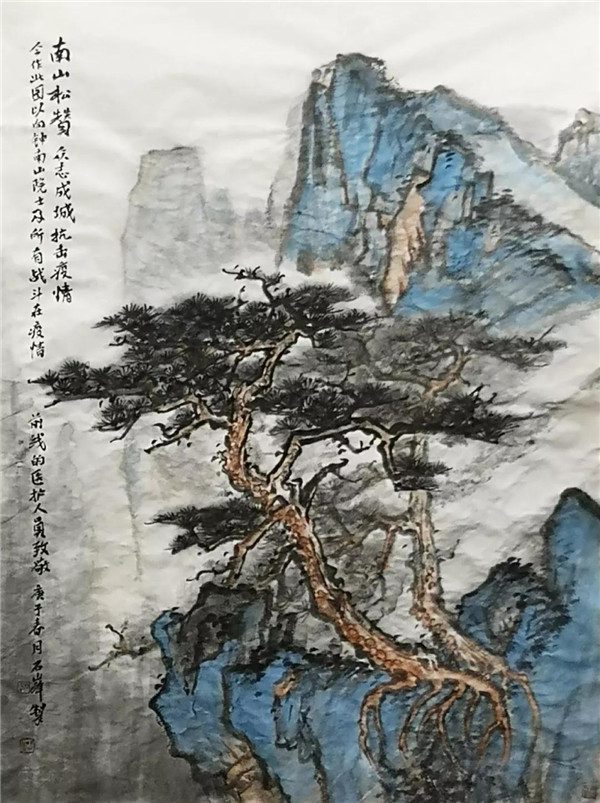 南山松赞 众志成城抗击疫情
今作此图以向钟南山院士及所有战斗在疫情
前线的医护人员致敬 庚子春月石峰